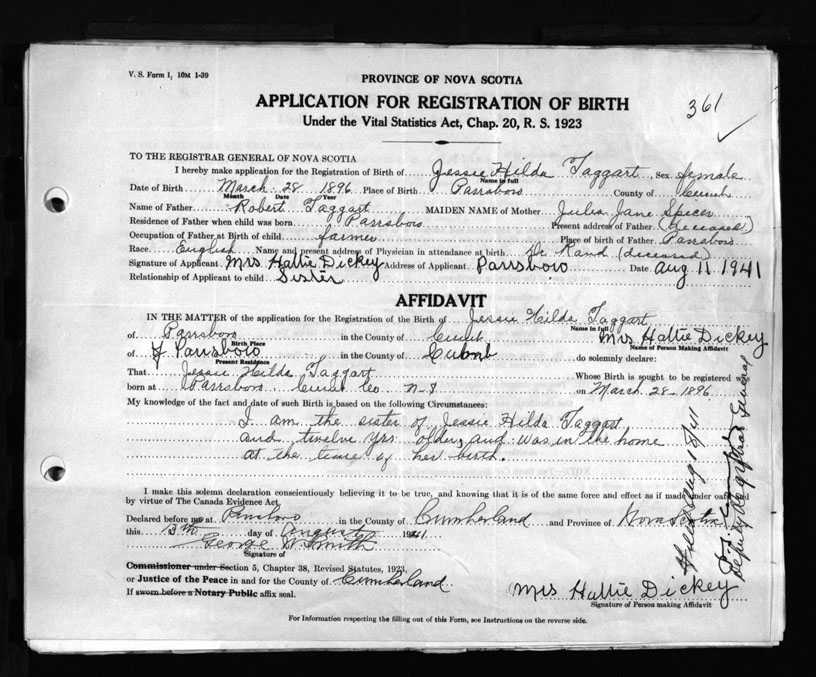 V. S. Form 1, 10M 1-39
PROVINCE OF NOVA SCOTIA
361
APPLICATION FOR REGISTRATION OF BIRTH
Under the Vital Statistics Act, Chap. 20, R. S. 1923
TO THE REGISTRAR GENERAL OF NOVA SCOTIA
I hereby make application for the Registration of Birth of Jessie Hilda Taggart Sex female
Name in full
Date of Birth March 28 1896 Place of Birth Parrsboro County of Cumb
Month Date Year
Name of Father Robert Taggart MAIDEN NAME of Mother Julia Jane Spicer
Residence of Father when child was born Parrsboro Present address of Father (deceased)
Occupation of Father at Birth of child farmer Place of birth of Father Parrsboro
Race English Name and present address of Physician in attendance at birth Dr Rand (deceased)
Signature of Applicant Mrs Hattie Dickey Address of Applicant Parrsboro Date Aug 11 1941
Relationship of Applicant to child Sister
AFFIDAVIT
IN THE MATTER of the application for the Registration of the Birth of Jessie Hilda Taggart
Name in full
of Parrsboro in the County of Cumb Mrs Hattie Dickey
Birth Place Name of Person Making Affidavit
of Parrsboro in the County of Cumb do solemnly declare:
Present Residence
That Jessie Hilda Taggart Whose Birth is sought to be registered was
born at Parrsboro Cumb Co N.S on March 28 1896
My knowledge of the fact and date of such Birth is based on the following Circumstances:
I am the sister of Jessie Hilda Taggart
and twelve yrs older, and was in the home
at the time of her birth.
I make this solemn declaration conscientiously believing it to be true, and knowing that it is of the same force and effect as if made under oath and
by virtue of The Canada Evidence Act.
Declared before me at Parrsboro in the County of Cumberland and Province of Nova Scotia
this 13th day of August 1941
George D Smith
Signature of
Commissioner under Section 5, Chapter 38, Revised Statutes, 1923.
or Justice of the Peace in and for the County of Cumberland
If sworn before a Notary Public affix seal.
Mrs Hattie Dickey
Signature of Person making Affidavit
For Information respecting the filling out of this Form, see Instructions on the reverse side.
Filed Aug 18/41
Deputy Registrar General